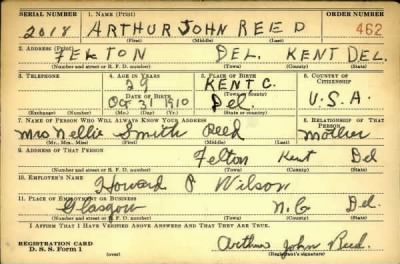 SERIAL NUMBER 1. NAME (Print) ORDER NUMBER
2018 ARTHUR JOHN REED 462
(First) (Middle) (Last)
2. ADDRESS (Print)
FELTON DEL. KENT DEL.
(Number and street or R. F. D. number) (Town) (County) (State)
3. TELEPHONE 4. AGE IN YEARS 5. PLACE OF BIRTH 6. COUNTRY OF CITIZENSHIP
29 KENT C.
DATE OF BIRTH (Town or county)
Oct 31 1910 Del. U.S.A.
(Exchange) (Number) (Mo.) (Day) (Yr.) (State or country)
7. NAME OF PERSON WHO WILL ALWAYS KNOW YOUR ADDRESS 8. RELATIONSHIP OF THAT PERSON
Mrs Nellie Smith Reed Mother
(Mr., Mrs., Miss) (First) (Middle) (Last)
9. ADDRESS OF THAT PERSON
Felton Kent Del
(Number and street or R. F. D. number) (Town) (County) (State)
10. EMPLOYER'S NAME
Howard P Wilson
11. PLACE OF EMPLOYMENT OR BUSINESS
Glasgow N.C. Del.
(Number and street or R. F. D. number) (Town) (County) (State)
I AFFIRM THAT I HAVE VERIFIED ABOVE ANSWERS AND THAT THEY ARE TRUE.
REGISTRATION CARD
D. S. S. Form 1 (over) Arthur John Reed.
(Registrant's signature)